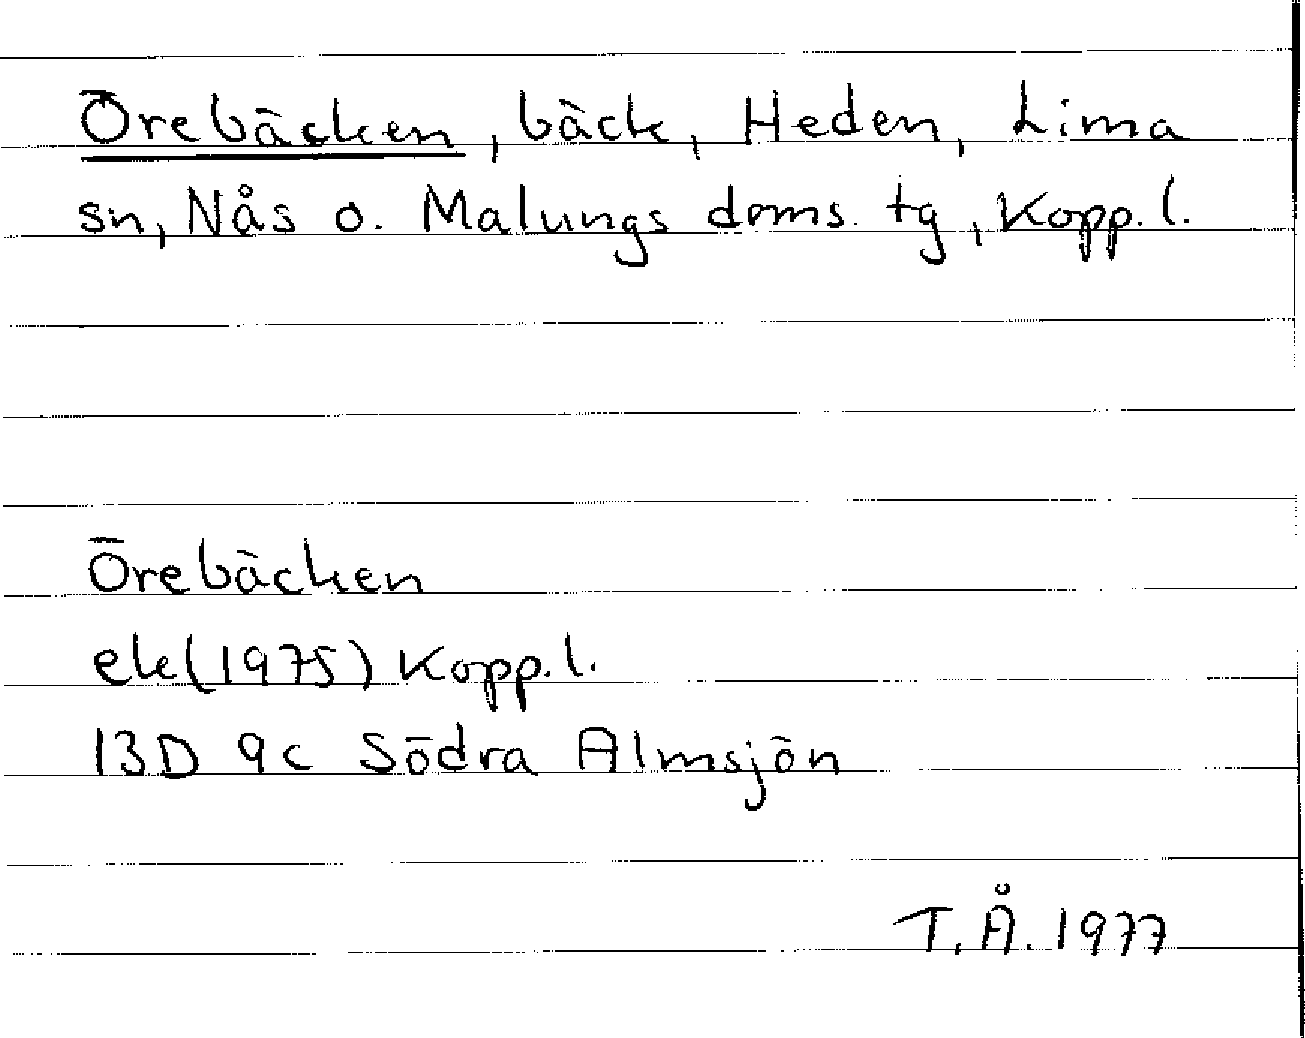 Örebäcken, bäck, Heden, Lima
sn, Nås o. Malungs doms. tg, Kopp. l.
Örebäcken
ek (1975) Kopp. l.
13D 9c Södra Almsjön
T. Å. 1977